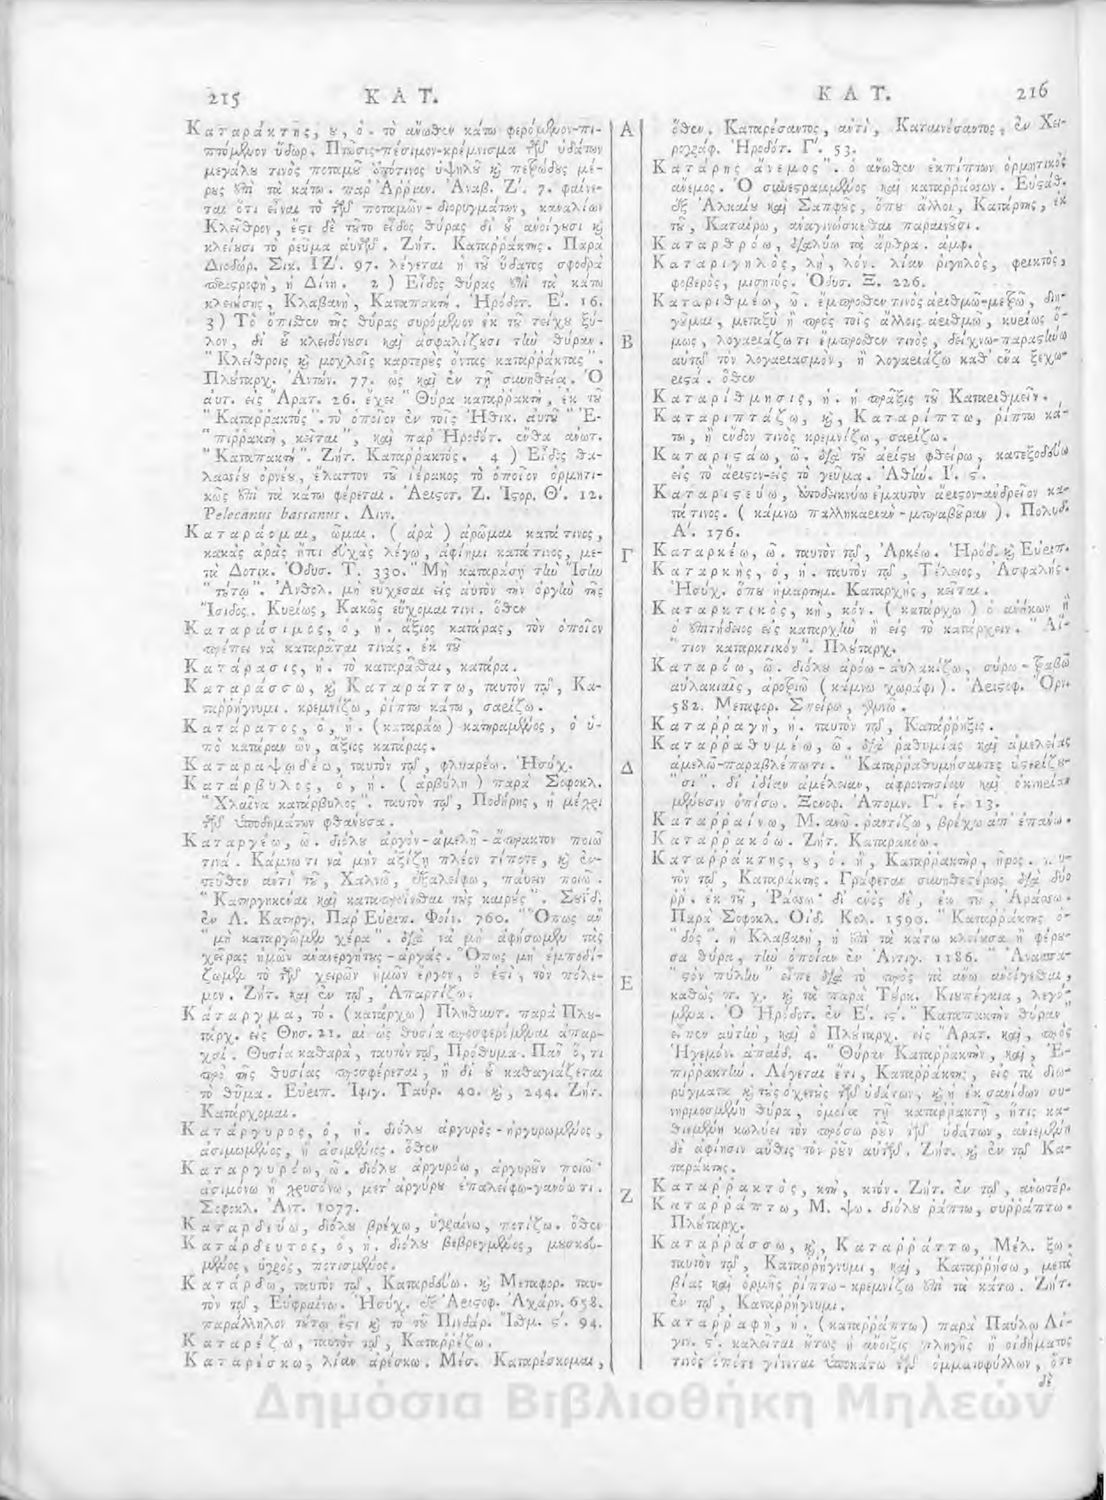 215 Κ Α Τ.
Καταράκτης, ου, ὁ. τὸ ἄνωθεν κάτω φερόμενον-πι-
πτόμενον ὕδωρ. Πτῶσις-πέσιμον-κρέμνισμα τῶν ὑδάτων
μεγάλου τινὸς ποταμοῦ
ρους ἐπὶ τὰ κάτω. παρ' Ἀρριαν. Ἀναβ. Ζ'. 7. φαίνε-
ται ὅτι εἶναι τὸ τῶν ποταμῶν-διορυγμάτων, καναλίων
Κλεῖθρον, ἔστι δὲ τοῦτο εἶδος θύρας δι' οὗ ἀνοίγουσι καὶ
κλείουσι τὸ ῥεῦμα αὐτῶν. Ζήτ. Καταρράκτης. Παρὰ
Διοδώρ. Σικ. ΙΖ'. 97. λέγεται ἡ τοῦ ὕδατος σφοδρὰ
περιστροφή, ἢ Δίνη. 2) Εἶδος θύρας ἐπὶ τὰ κάτω
κλειούσης, Κλαβανή, Καταπακτή. Ἡρόδοτ. Ε'. 16.
3) Τὸ ὄπισθεν τῆς θύρας συρόμενον ἐκ τοῦ τείχου ξύ-
λον, δι' οὗ κλειδόνουσι καὶ ἀσφαλίζουσι τὴν θύραν.
"Κλείθροις καὶ μοχλοῖς καρτεροὺς ὄντας καταρράκτας".
Πλούταρχ. Ἀντών. 77. ὡς καὶ ἐν τῇ συνηθείᾳ. Ὁ
αὐτ. εἰς Ἄρατ. 26. ἔχει "Θύρα καταρράκτη, ἐκ τοῦ
"Καταρρακτός". τὸ ὁποῖον ἐν τοῖς Ἠθικ. αὐτοῦ "Ἐ-
"πιρράκτη, κεῖται", καὶ παρ' Ἡροδότ. ἔνθα ἀνωτ.
"Καταπακτή". Ζήτ. Καταρρακτός. 4) Εἶδος θα-
λασσίου ὀρνέου, ἔλαττον τοῦ ἱέρακος τὸ ὁποῖον ὁρμητι-
κῶς ἐπὶ τὰ κάτω φέρεται. Ἀριστοτ. Ζ. Ἱστορ. Θ'. 12.
Pelecanus bassanus. Λινν.
Καταράομαι, ῶμαι. (ἀρὰ) ἀρῶμαι κατά τινος,
κακὰς ἀρὰς ἤτοι εὐχὰς λέγω, ἀφίημι κατά τινος, με-
τὰ Δοτικ. Ὀδυσ. Τ. 330. "Μὴ καταράσῃ τὴν Ἶσιν
"τούτῳ". Ἀνθολ. μὴ εὔχεσαι εἰς αὐτὸν τὴν ὀργὴν τῆς
Ἴσιδος. Κυρίως, Κακῶς εὔχομαί τινι. ὅθεν
Καταράσιμος, ὁ, ἡ. ἄξιος κατάρας, τὸν ὁποῖον
πρέπει νὰ καταρᾶταί τινας. ἐκ τοῦ
Κατάρασις, ἡ. τὸ καταρᾶσθαι, κατάρα.
Καταράσσω, καὶ Καταράττω, ταυτὸν τῷ, Κα-
ταρρήγνυμι. κρεμνίζω, ῥίπτω κάτω, σαρίζω.
Κατάρατος, ὁ, ἡ. (καταράω) κατηραμένος, ὁ ὑ-
πὸ κατάραν ὤν, ἄξιος κατάρας.
Καταραψωδέω, ταυτὸν τῷ, φλυαρέω. Ἡσύχ.
Κατάρβυλος, ὁ, ἡ. (ἀρβύλη) παρὰ Σοφοκλ.
"Χλαῖνα κατάρβυλος". ταυτὸν τῷ, Ποδήρης, ἡ μέχρι
τῶν ὑποδημάτων φθάνουσα.
Καταργέω, ῶ. διόλου ἀργὸν-ἀμελῆ-ἄπρακτον ποιῶ
τινά. Κάμνω τι νὰ μὴν ἀξίζῃ πλέον τίποτε, καὶ ἐν-
τεῦθεν ἀντὶ τοῦ, Χαλνῶ, ἐξαλείφω, παύειν ποιῶ.
"Κατηργηκέναι καὶ τοὺς καιρούς". Σουΐδ.
ἐν Λ. Κατηργ. Παρ' Εὐριπ. Φοίν. 760. "Ὅπως ἂν
"μὴ καταργῶμεν χέρα". διὰ νὰ μὴ ἀφήσωμεν τὰς
χεῖρας ἡμῶν ἀνενεργήτους-ἀργάς. Ὅπως μὴ ἐμποδί-
ζωμεν τὸ τῶν χειρῶν ἡμῶν ἔργον, ὅ ἐστι, τὸν πόλε-
μον. Ζήτ. καὶ ἐν τῷ, Ἀπαρτίζω.
Κάταργμα, τό. (κατάρχω) Πληθυντ. παρὰ Πλου-
τάρχ. εἰς Θησ. 21. αἱ ὡς θυσία προσφερόμεναι ἀπαρ-
χαί. Θυσία καθαρά, ταυτὸν τῷ, Πρόθυμα. Πᾶν ὅ,τι
πρὸ τῆς θυσίας προσφέρεται, ἢ δι' οὗ καθαγιάζεται
τὸ θῦμα. Εὐριπ. Ἰφιγ. Ταύρ. 40. καὶ, 244. Ζήτ.
Κατάρχομαι.
Κατάργυρος, ὁ, ἡ. διόλου ἀργυρὸς-ἠργυρωμένος,
ἀσιμωμένος, ἢ ἀσημένιος. ὅθεν
Καταργυρόω, ῶ. διόλου ἀργυρόω, ἀργυροῦν ποιῶ
ἀσιμόνω ἢ χρυσόνω, μετ' ἀργύρου ἐπαλείφω-γανόω τι.
Σοφοκλ. Ἀντ. 1077.
Καταρδεύω, διόλου βρέχω, ὑγραίνω, ποτίζω. ὅθεν
Κατάρδευτος, ὁ, ἡ. διόλου βεβρεγμένος, μουσκευ-
μένος, ὑγρός, ποτισμένος.
Κατάρδω, ταυτὸν τῷ, Καταρδεύω. καὶ Μεταφορ. ταυ-
τὸν τῷ, Εὐφραίνω. Ἡσύχ. ἐξ Ἀριστοφ. Ἀχάρν. 658.
παράλληλον τούτῳ ἐστὶ καὶ τὸ τοῦ Πινδάρ. Ἰσθμ. ς'. 94.
Καταρέζω, ταυτὸν τῷ, Καταρρέζω.
Καταρέσκω, λίαν ἀρέσκω. Μέσ. Καταρέσκομαι,
Α
Β
Γ
Δ
Ε
Ζ
Κ Α Τ. 216
ὅθεν. Καταρέσαντος, ἀντὶ, Καταινέσαντος, ἐν Χει-
ρογράφ. Ἡροδότ. Γ'. 53.
Κατάρης ἄνεμος". ὁ ἄνωθεν ἐκπίπτων ὁρμητικὸς
ἄνεμος. Ὁ συνεστραμμένος καὶ καταρράσσων. Εὐσταθ.
ἐξ Ἀλκαίου καὶ Σαπφοῦς, ὅπου ἄλλοι, Κατάρης, ἐκ
τοῦ, Καταίρω, ἀναγινώσκεσθαι παραινοῦσι.
Καταρθρόω, διαλύω τὰ ἄρθρα. ἀμφ.
Καταριγηλός, λή, λόν. λίαν ῥιγηλός, φρικτός,
φοβερός, μισητός. Ὀδυσ. Ξ. 226.
Καταριθμέω, ῶ. ἔμπροσθέν τινος ἀριθμῶ-μετρῶ, διη-
γοῦμαι, μεταξὺ ἢ πρὸς τοῖς ἄλλοις ἀριθμῶ, κυρίως ὅ-
μως, λογαριάζω τι ἔμπροσθέν τινος, δείχνω-παραστένω
αὐτῷ τὸν λογαριασμόν, ἢ λογαριάζω καθ' ἕνα ξεχω-
ριστά. ὅθεν
Καταρίθμησις, ἡ. ἡ πρᾶξις τοῦ Καταριθμεῖν.
Καταριπτάζω, καὶ, Καταρίπτω, ῥίπτω κά-
τω, ἢ ἔνδον τινὸς κρεμνίζω, σαρίζω.
Καταριστάω, ῶ. διὰ τοῦ ἀρίστου φθείρω, κατεξοδεύω
εἰς τὸ ἄριστον-εἰς τὸ γεῦμα. Ἀθήν. Γ'. ς'.
Καταριστεύω, ὑποδεικνύω ἐμαυτὸν ἄριστον-ἀνδρεῖον κα-
τά τινος. (κάμνω παλληκαριὰν-μπραβοῦραν). Πολυδ.
Α'. 176.
Καταρκέω, ῶ. ταυτὸν τῷ, Ἀρκέω. Ἡρόδ. καὶ Εὐριπ.
Καταρκής, ὁ, ἡ. ταυτὸν τῷ, Τέλειος, Ἀσφαλής.
Ἡσύχ. ὅπου ἡμαρτημ. Καταρχής, κεῖται.
Καταρκτικός, κή, κόν. (κατάρχω) ὁ ἀνήκων ἢ
ὁ ἐπιτήδειος εἰς καταρχὴν ἢ εἰς τὸ κατάρχειν. "Αἴ-
"τιον καταρκτικόν". Πλούταρχ.
Καταρόω, ῶ. διόλου ἀρόω-αὐλακίζω, σύρω-τραβῶ
αὐλακιαῖς, ἀροτριῶ (κάμνω χωράφι). Ἀριστοφ. Ὄρν.
582. Μεταφορ. Σπείρω, γεννῶ.
Καταρραγή, ἡ. ταυτὸν τῷ, Κατάρρηξις.
Καταρραθυμέω, ῶ. διὰ ῥαθυμίας καὶ ἀμελείας
ἀμελῶ-παραβλέπω τι. "Καταρραθυμήσαντες ὑστερίζου-
"σι". δι' ἰδίαν ἀμέλειαν, ἀφροντισίαν καὶ ὀκνηρίαν
μένουσιν ὀπίσω. Ξενοφ. Ἀπομν. Γ'. έ. 13.
Καταρραίνω, Μ. ανῶ. ῥαντίζω, βρέχω ἀπ' ἐπάνω.
Καταρρακόω. Ζήτ. Καταρακόω.
Καταρράκτης, ου, ὁ. ἢ, Καταρρακτήρ, ῆρος.
τὸν τῷ, Καταράκτης. Γράφεται συνηθεστέρως διὰ δύο
ρρ. ἐκ τοῦ, Ῥάσσω· δι' ἑνὸς δὲ, ἐκ τοῦ, Ἀράσσω.
Παρὰ Σοφοκλ. Οἰδ. Κολ. 1590. "Καταρράκτης ὀ-
"δός". ἡ Κλαβανή, ἡ ἐπὶ τὰ κάτω κλείουσα ἢ φέρου-
σα θύρα, τὴν ὁποίαν ἐν Ἀντιγ. 1186. "Ἀνασπα-
"στὸν πύλην" εἶπε διὰ τὸ πρὸς τὰ ἄνω ἀνοίγεσθαι,
καθὼς π. χ. καὶ τὰ παρὰ Τούρκ. Κιοπέγκια, λεγό-
μενα. Ὁ Ἡρόδοτ. ἐν Ε'. ις'. "Καταπακτὴν θύραν
εἶπεν αὐτὴν, καὶ ὁ Πλούταρχ. εἰς Ἄρατ. καὶ, πρὸς
Ἡγεμόν. ἀπαίδ. 4. "Θύραν Καταρράκτην, καὶ, Ἐ-
πιρράκτην. Λέγεται ἔτι, Καταρράκτης, εἰς τὰ διω-
ρύγματα καὶ τοὺς ὀχετοὺς τῶν ὑδάτων, καὶ ἡ ἐκ σανίδων συ-
νηρμοσμένη θύρα, ὁμοία τῇ καταρρακτῇ, ἥτις κα-
θιεμένη κωλύει τὸν πρόσω ῥοῦν τῶν ὑδάτων, ἀνιεμένη
δὲ ἀφίησιν αὖθις τὸν ῥοῦν αὐτῶν. Ζήτ. καὶ ἐν τῷ Κα-
ταράκτης.
Καταρρακτός, κτή, κτόν. Ζήτ. ἐν τῷ, ἀνωτέρ.
Καταρράπτω, Μ. ψω. διόλου ῥάπτω, συρράπτω.
Πλούταρχ.
Καταρράσσω, καὶ, Καταρράττω, Μέλ. ξω.
ταυτὸν τῷ, Καταρρήγνυμι, καὶ, Καταρρήσσω, μετὰ
βίας καὶ ὁρμῆς ῥίπτω-κρεμνίζω ἐπὶ τὰ κάτω. Ζήτ.
ἐν τῷ, Καταρρήγνυμι.
Καταρραφή, ἡ. (καταρράπτω) παρὰ Παύλῳ Αἰ-
γιν. ς'. καλεῖται οὕτως ἡ ἄνοιξις πληγῆς ἢ οἰδήματος
τινὸς ὁπότε γίνεται ὑποκάτω τῶν ὀμματοφύλλων, ὅτε
δὲ
Δημόσια Βιβλιοθήκη Μηλεών